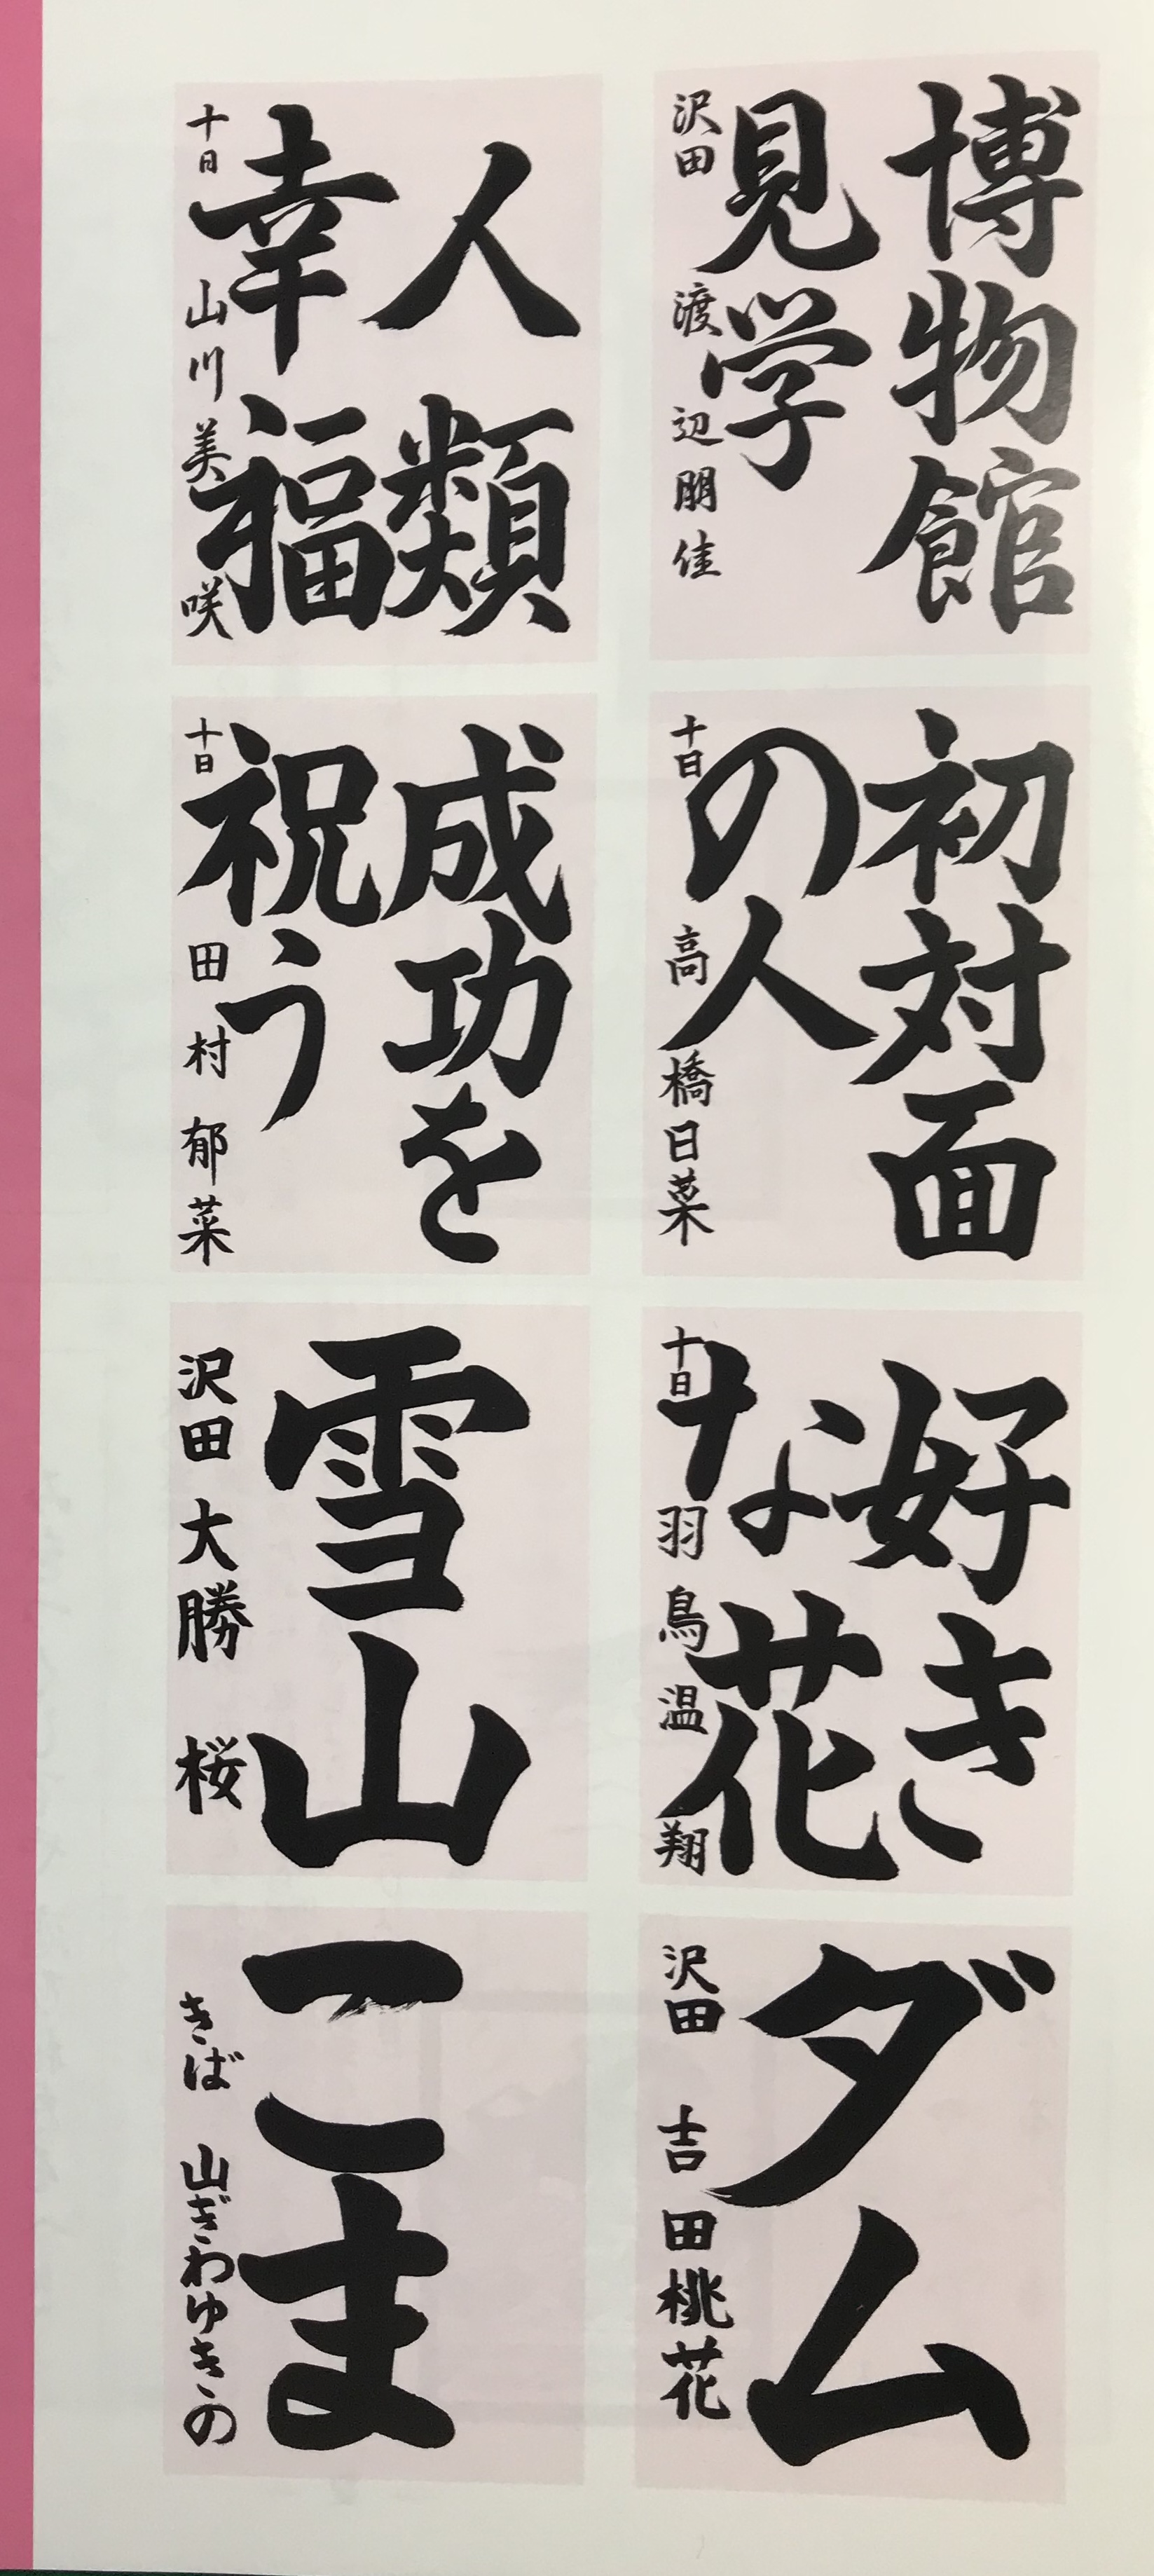 博物館
見学
沢田 渡辺朋佳
人類
幸福
十日 山川美咲
初対面
の人
十日 高橋日菜
成功を
祝う
十日 田村郁菜
好き
な花
十日 羽鳥温翔
雪山
沢田 大勝 桜
ダム
沢田 吉田桃花
こま
きば 山ざわゆきの